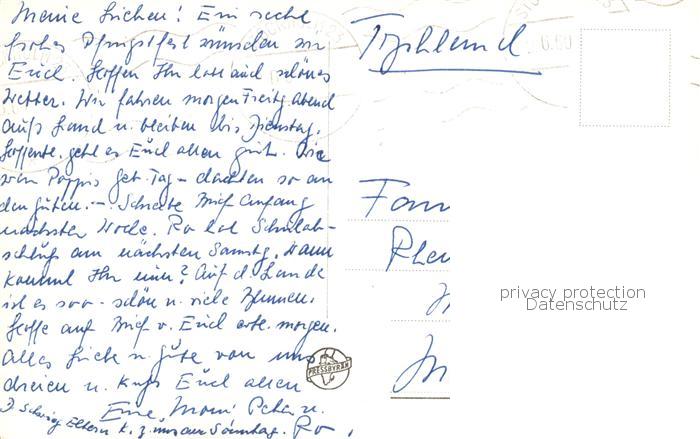 Meine Lieben! Ein recht
frohes Pfingstfest wünschen wir
Euch. Hoffen Ihr habt auch schönes
Wetter. Wir fahren morgen Freitg Abend
aufs Land u. bleiben bis Dienstag.
Hoffentl. geht es Euch allen gut.
war Pappis Geb. Tag - dachten so an
den guten. - Schreibe Brief Anfang
nächster Woche. Ro hat Schulab-
schluß am nächsten Samstg. Wann
kommt Ihr nun? Auf d. Lande
ist es soo - schön u. viele Blumen.
Hoffe auf Brief v. Euch evtl. morgen.
Alles Liebe u. Gute von uns
dreien u. Kuß Euch allen
Eure Momi Peter u.
Schwieg Eltern k. z. uns am Sonntag. Ro
Tyskland
Fam
Rhei
PRESSBYRÅN
privacy protection
Datenschutz